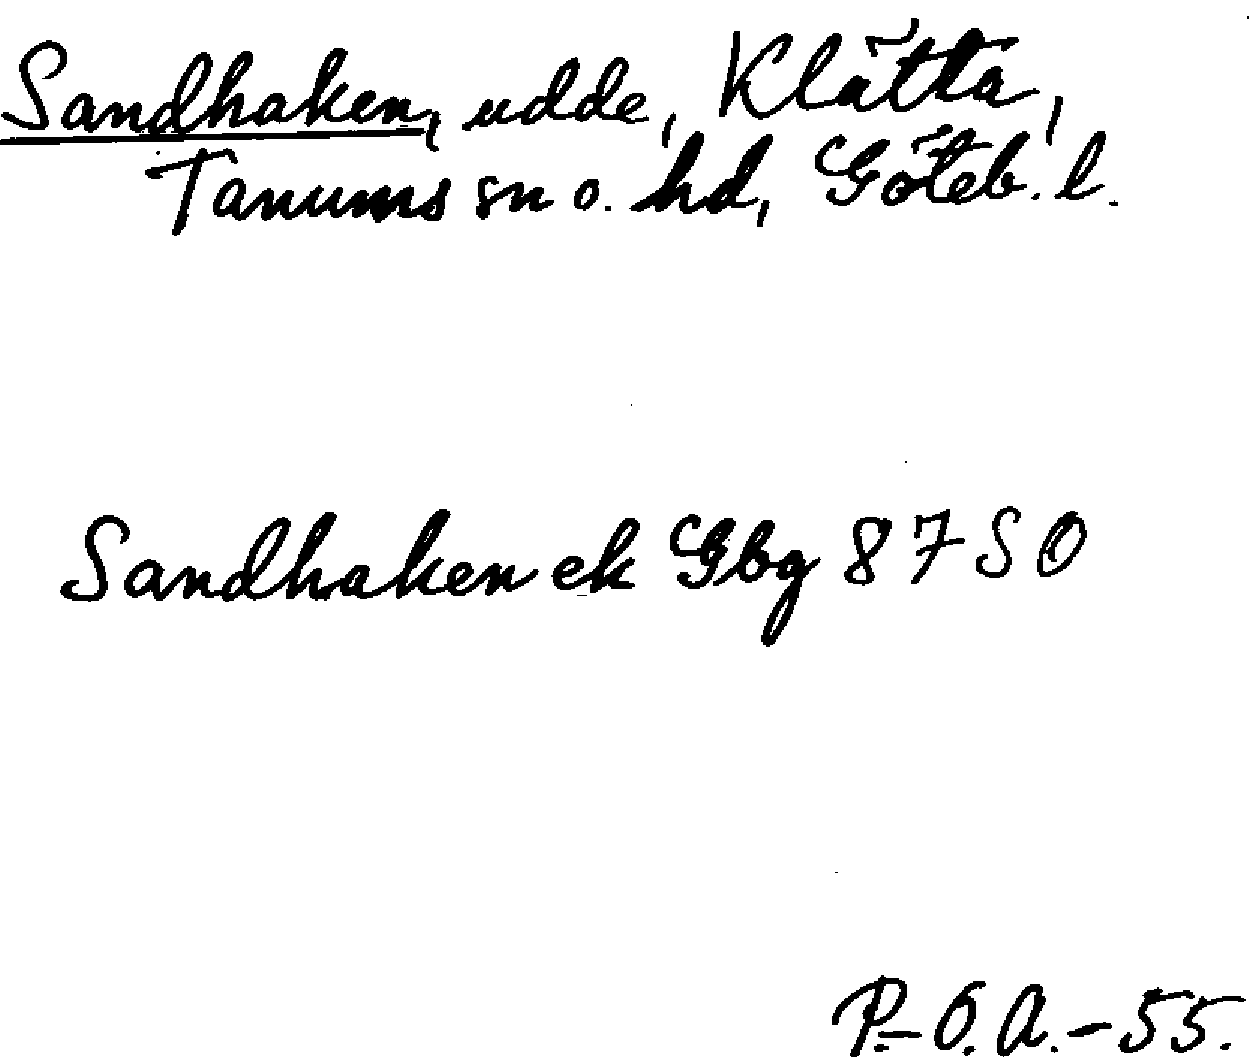 Sandhaken, udde, Klätta,
Tanums sn o. hd, Göteb. l.
Sandhaken ek Gbg 87 SO
P.-O. A. -55.